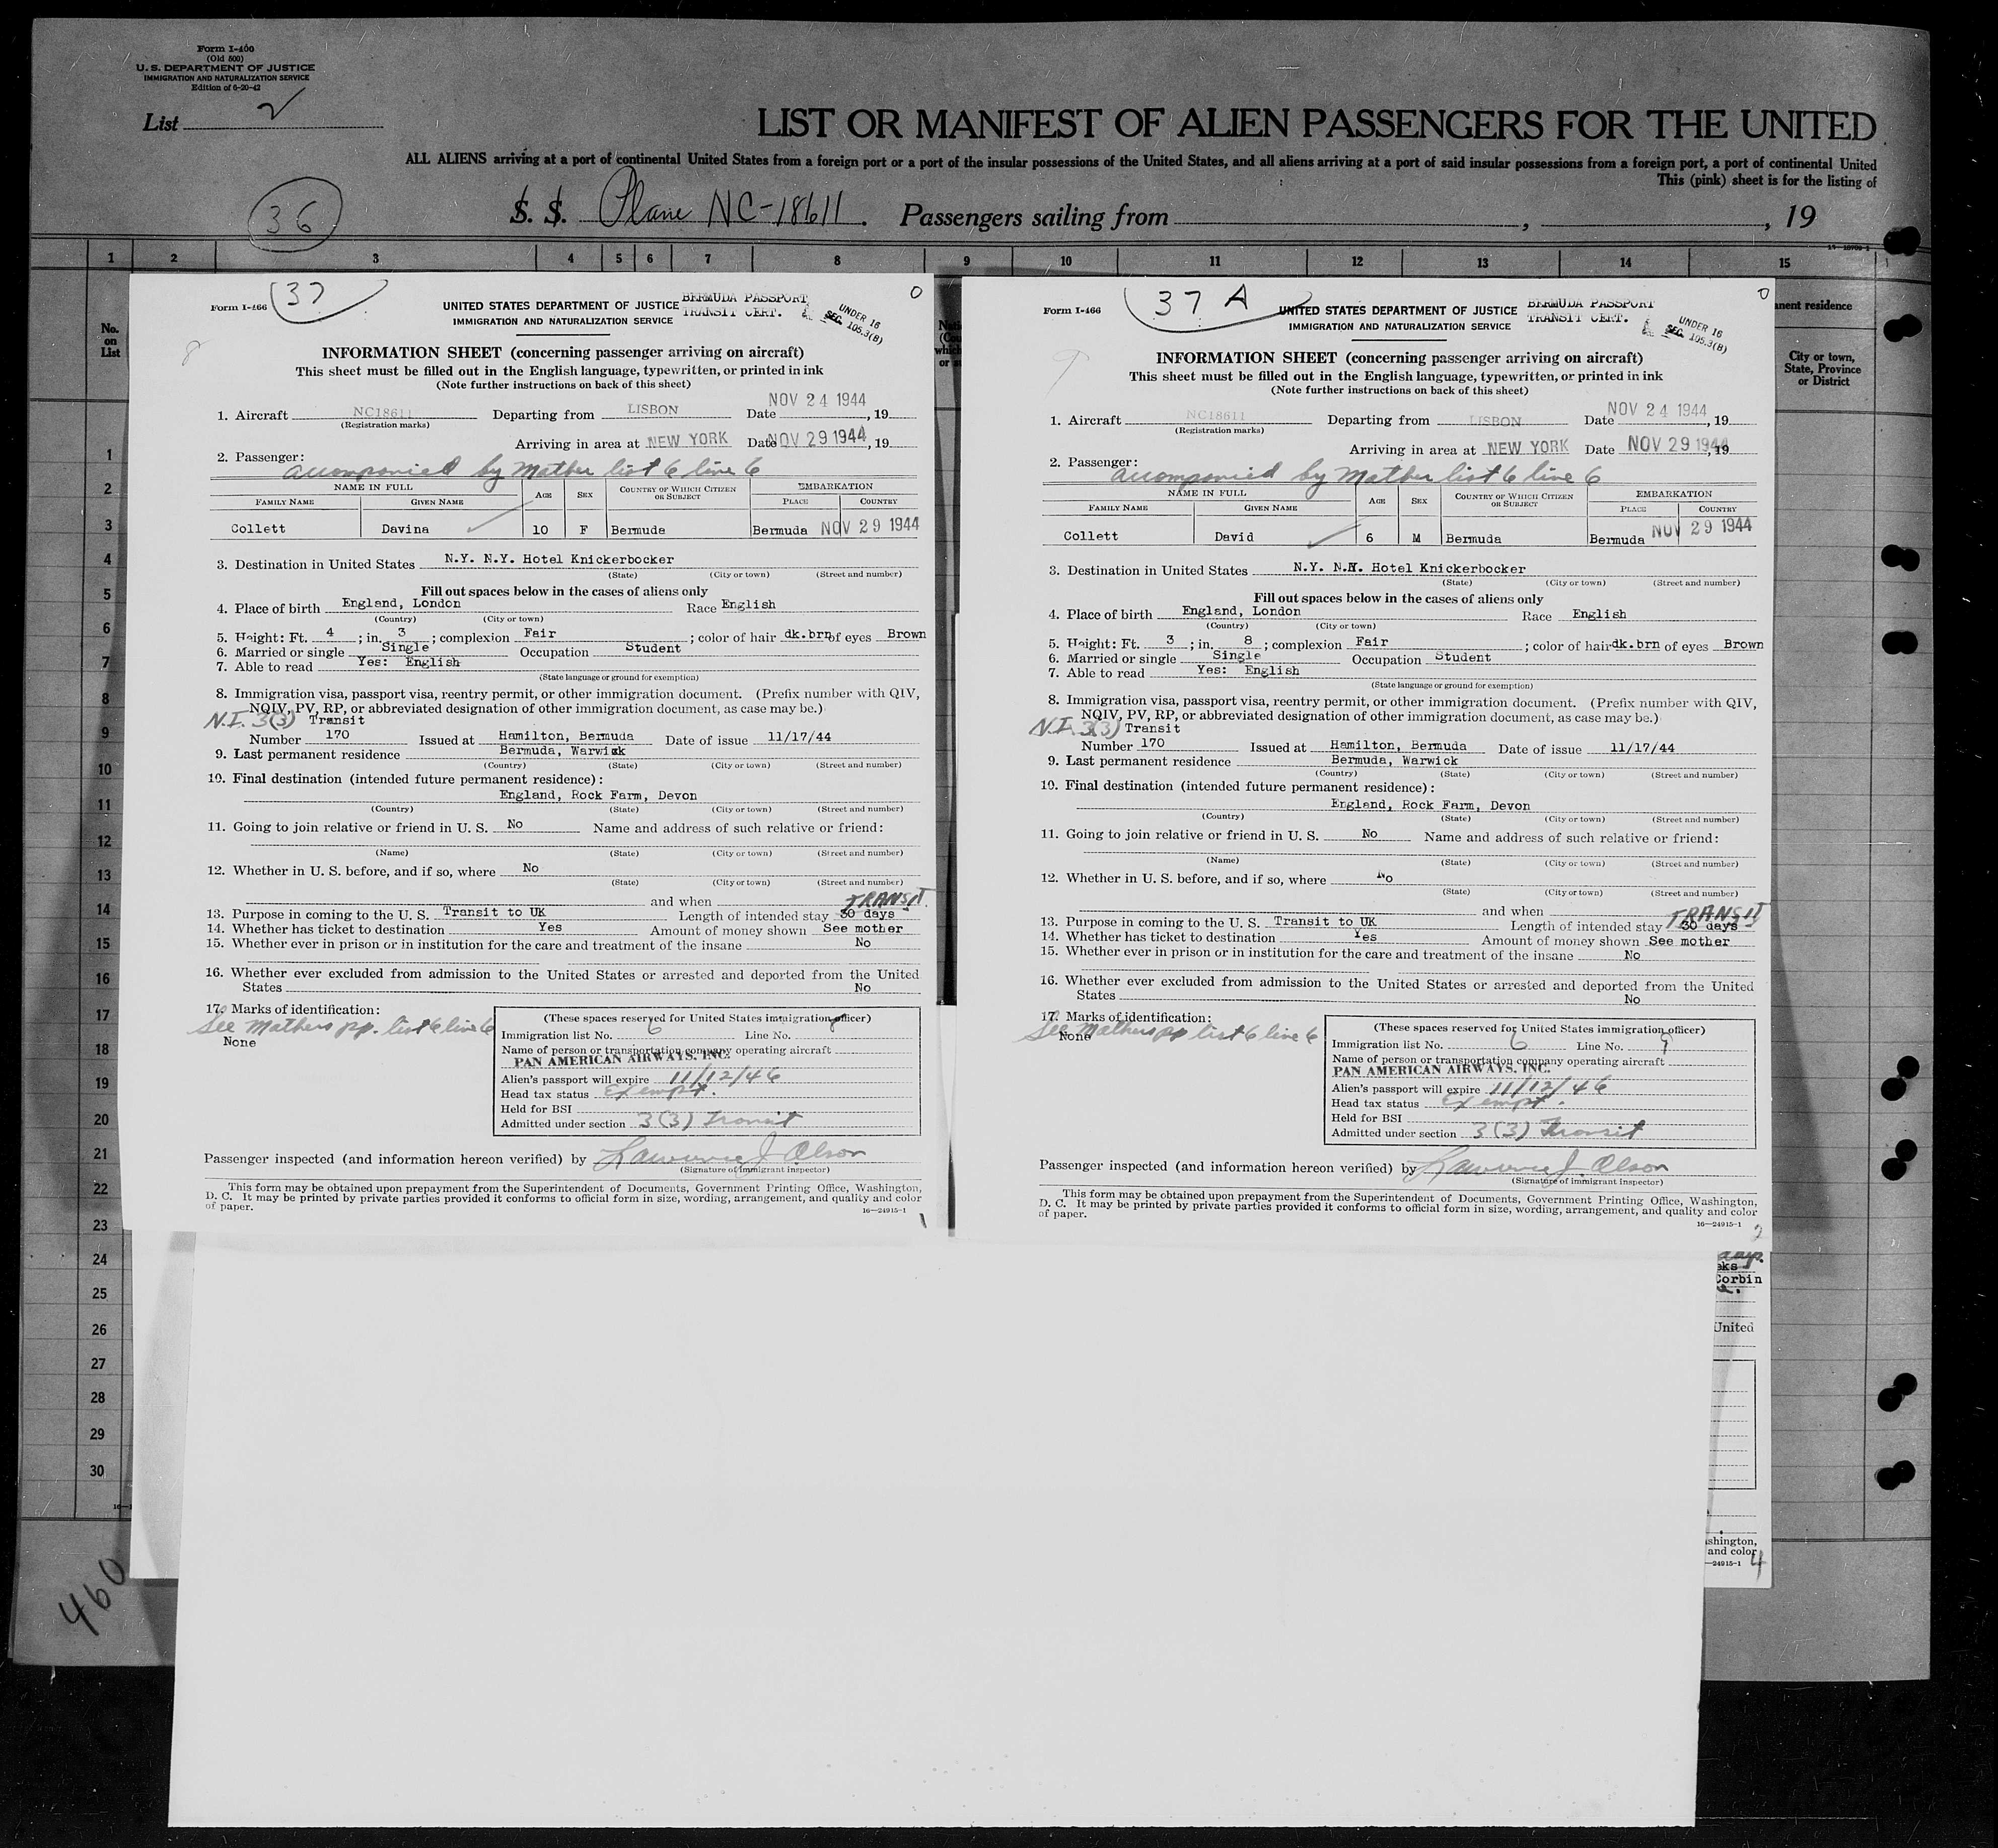 Form I-460
(Old 500)
U. S. DEPARTMENT OF JUSTICE
IMMIGRATION AND NATURALIZATION SERVICE
Edition of 6-20-42
List 2
LIST OR MANIFEST OF ALIEN PASSENGERS FOR THE UNITED
ALL ALIENS arriving at a port of continental United States from a foreign port or a port of the insular possessions of the United States, and all aliens arriving at a port of said insular possessions from a foreign port, a port of continental United
This (pink) sheet is for the listing of
36
S. S. Plane NC-18611. Passengers sailing from , , 19
1 2 3 4 5 6 7 8 9 10 11 12 13 14 15
No.
on
List
1
2
3
4
5
6
7
8
9
10
11
12
13
14
15
16
17
18
19
20
21
22
23
24
25
26
27
28
29
30
460
Form I-466
37
UNITED STATES DEPARTMENT OF JUSTICE
IMMIGRATION AND NATURALIZATION SERVICE
BERMUDA PASSPORT
TRANSIT CERT.
UNDER 16
SEC. 105.3(B)
0
8
INFORMATION SHEET (concerning passenger arriving on aircraft)
This sheet must be filled out in the English language, typewritten, or printed in ink
(Note further instructions on back of this sheet)
1. Aircraft NC18611 Departing from LISBON Date NOV 24 1944, 19
(Registration marks)
Arriving in area at NEW YORK Date NOV 29 1944, 19
2. Passenger:
accomponied by Mother list 6 line 6
NAME IN FULL AGE SEX COUNTRY OF WHICH CITIZEN OR SUBJECT EMBARKATION
FAMILY NAME GIVEN NAME PLACE COUNTRY
Collett Davina 10 F Bermuda Bermuda NOV 29 1944
3. Destination in United States N.Y. N.Y. Hotel Knickerbocker
(State) (City or town) (Street and number)
Fill out spaces below in the cases of aliens only
4. Place of birth England, London Race English
(Country) (City or town)
5. Height: Ft. 4 ; in. 3 ; complexion Fair ; color of hair dk.brn of eyes Brown
6. Married or single Single Occupation Student
7. Able to read Yes: English
(State language or ground for exemption)
8. Immigration visa, passport visa, reentry permit, or other immigration document. (Prefix number with QIV,
NQIV, PV, RP, or abbreviated designation of other immigration document, as case may be.)
N.I. 3(3) Transit
Number 170 Issued at Hamilton, Bermuda Date of issue 11/17/44
9. Last permanent residence Bermuda, Warwick
(Country) (State) (City or town) (Street and number)
10. Final destination (intended future permanent residence):
England, Rock Farm, Devon
(Country) (State) (City or town) (Street and number)
11. Going to join relative or friend in U. S. No Name and address of such relative or friend:
(Name) (State) (City or town) (Street and number)
12. Whether in U. S. before, and if so, where No
(State) (City or town) (Street and number)
and when
TRANSIT
13. Purpose in coming to the U. S. Transit to UK Length of intended stay 30 days
14. Whether has ticket to destination Yes Amount of money shown See mother
15. Whether ever in prison or in institution for the care and treatment of the insane No
16. Whether ever excluded from admission to the United States or arrested and deported from the United
States No
17. Marks of identification:
See Mothers pp. list 6 line 6
None
(These spaces reserved for United States immigration officer)
Immigration list No. 6 Line No. 8
Name of person or transportation company operating aircraft
PAN AMERICAN AIRWAYS, INC.
Alien's passport will expire 11/12/46
Head tax status Exempt.
Held for BSI
Admitted under section 3(3) Transit
Passenger inspected (and information hereon verified) by Lawrence J. Olson
(Signature of immigrant inspector)
This form may be obtained upon prepayment from the Superintendent of Documents, Government Printing Office, Washington,
D. C. It may be printed by private parties provided it conforms to official form in size, wording, arrangement, and quality and color
of paper.
16—24915-1
1
Form I-466
37 A
UNITED STATES DEPARTMENT OF JUSTICE
IMMIGRATION AND NATURALIZATION SERVICE
BERMUDA PASSPORT
TRANSIT CERT.
UNDER 16
SEC. 105.3(B)
0
9
INFORMATION SHEET (concerning passenger arriving on aircraft)
This sheet must be filled out in the English language, typewritten, or printed in ink
(Note further instructions on back of this sheet)
1. Aircraft NC18611 Departing from LISBON Date NOV 24 1944, 19
(Registration marks)
Arriving in area at NEW YORK Date NOV 29 1944, 19
2. Passenger:
accomponied by Mother list 6 line 6
NAME IN FULL AGE SEX COUNTRY OF WHICH CITIZEN OR SUBJECT EMBARKATION
FAMILY NAME GIVEN NAME PLACE COUNTRY
Collett David 6 M Bermuda Bermuda NOV 29 1944
3. Destination in United States N.Y. N.Y. Hotel Knickerbocker
(State) (City or town) (Street and number)
Fill out spaces below in the cases of aliens only
4. Place of birth England, London Race English
(Country) (City or town)
5. Height: Ft. 3 ; in. 8 ; complexion Fair ; color of hair dk.brn of eyes Brown
6. Married or single Single Occupation Student
7. Able to read Yes: English
(State language or ground for exemption)
8. Immigration visa, passport visa, reentry permit, or other immigration document. (Prefix number with QIV,
NQIV, PV, RP, or abbreviated designation of other immigration document, as case may be.)
N.I. 3(3) Transit
Number 170 Issued at Hamilton, Bermuda Date of issue 11/17/44
9. Last permanent residence Bermuda, Warwick
(Country) (State) (City or town) (Street and number)
10. Final destination (intended future permanent residence):
England, Rock Farm, Devon
(Country) (State) (City or town) (Street and number)
11. Going to join relative or friend in U. S. No Name and address of such relative or friend:
(Name) (State) (City or town) (Street and number)
12. Whether in U. S. before, and if so, where No
(State) (City or town) (Street and number)
and when
TRANSIT
13. Purpose in coming to the U. S. Transit to UK Length of intended stay 30 days
14. Whether has ticket to destination Yes Amount of money shown See mother
15. Whether ever in prison or in institution for the care and treatment of the insane No
16. Whether ever excluded from admission to the United States or arrested and deported from the United
States No
17. Marks of identification:
See Mothers pp list 6 line 6
None
(These spaces reserved for United States immigration officer)
Immigration list No. 6 Line No. 9
Name of person or transportation company operating aircraft
PAN AMERICAN AIRWAYS, INC.
Alien's passport will expire 11/12/46
Head tax status Exempt.
Held for BSI
Admitted under section 3(3) Transit
Passenger inspected (and information hereon verified) by Lawrence J. Olson
(Signature of immigrant inspector)
This form may be obtained upon prepayment from the Superintendent of Documents, Government Printing Office, Washington,
D. C. It may be printed by private parties provided it conforms to official form in size, wording, arrangement, and quality and color
of paper.
16—24915-1
2
nent residence
City or town,
State, Province
or District
eks
Corbin
United
shington,
and color
—24915-1
4